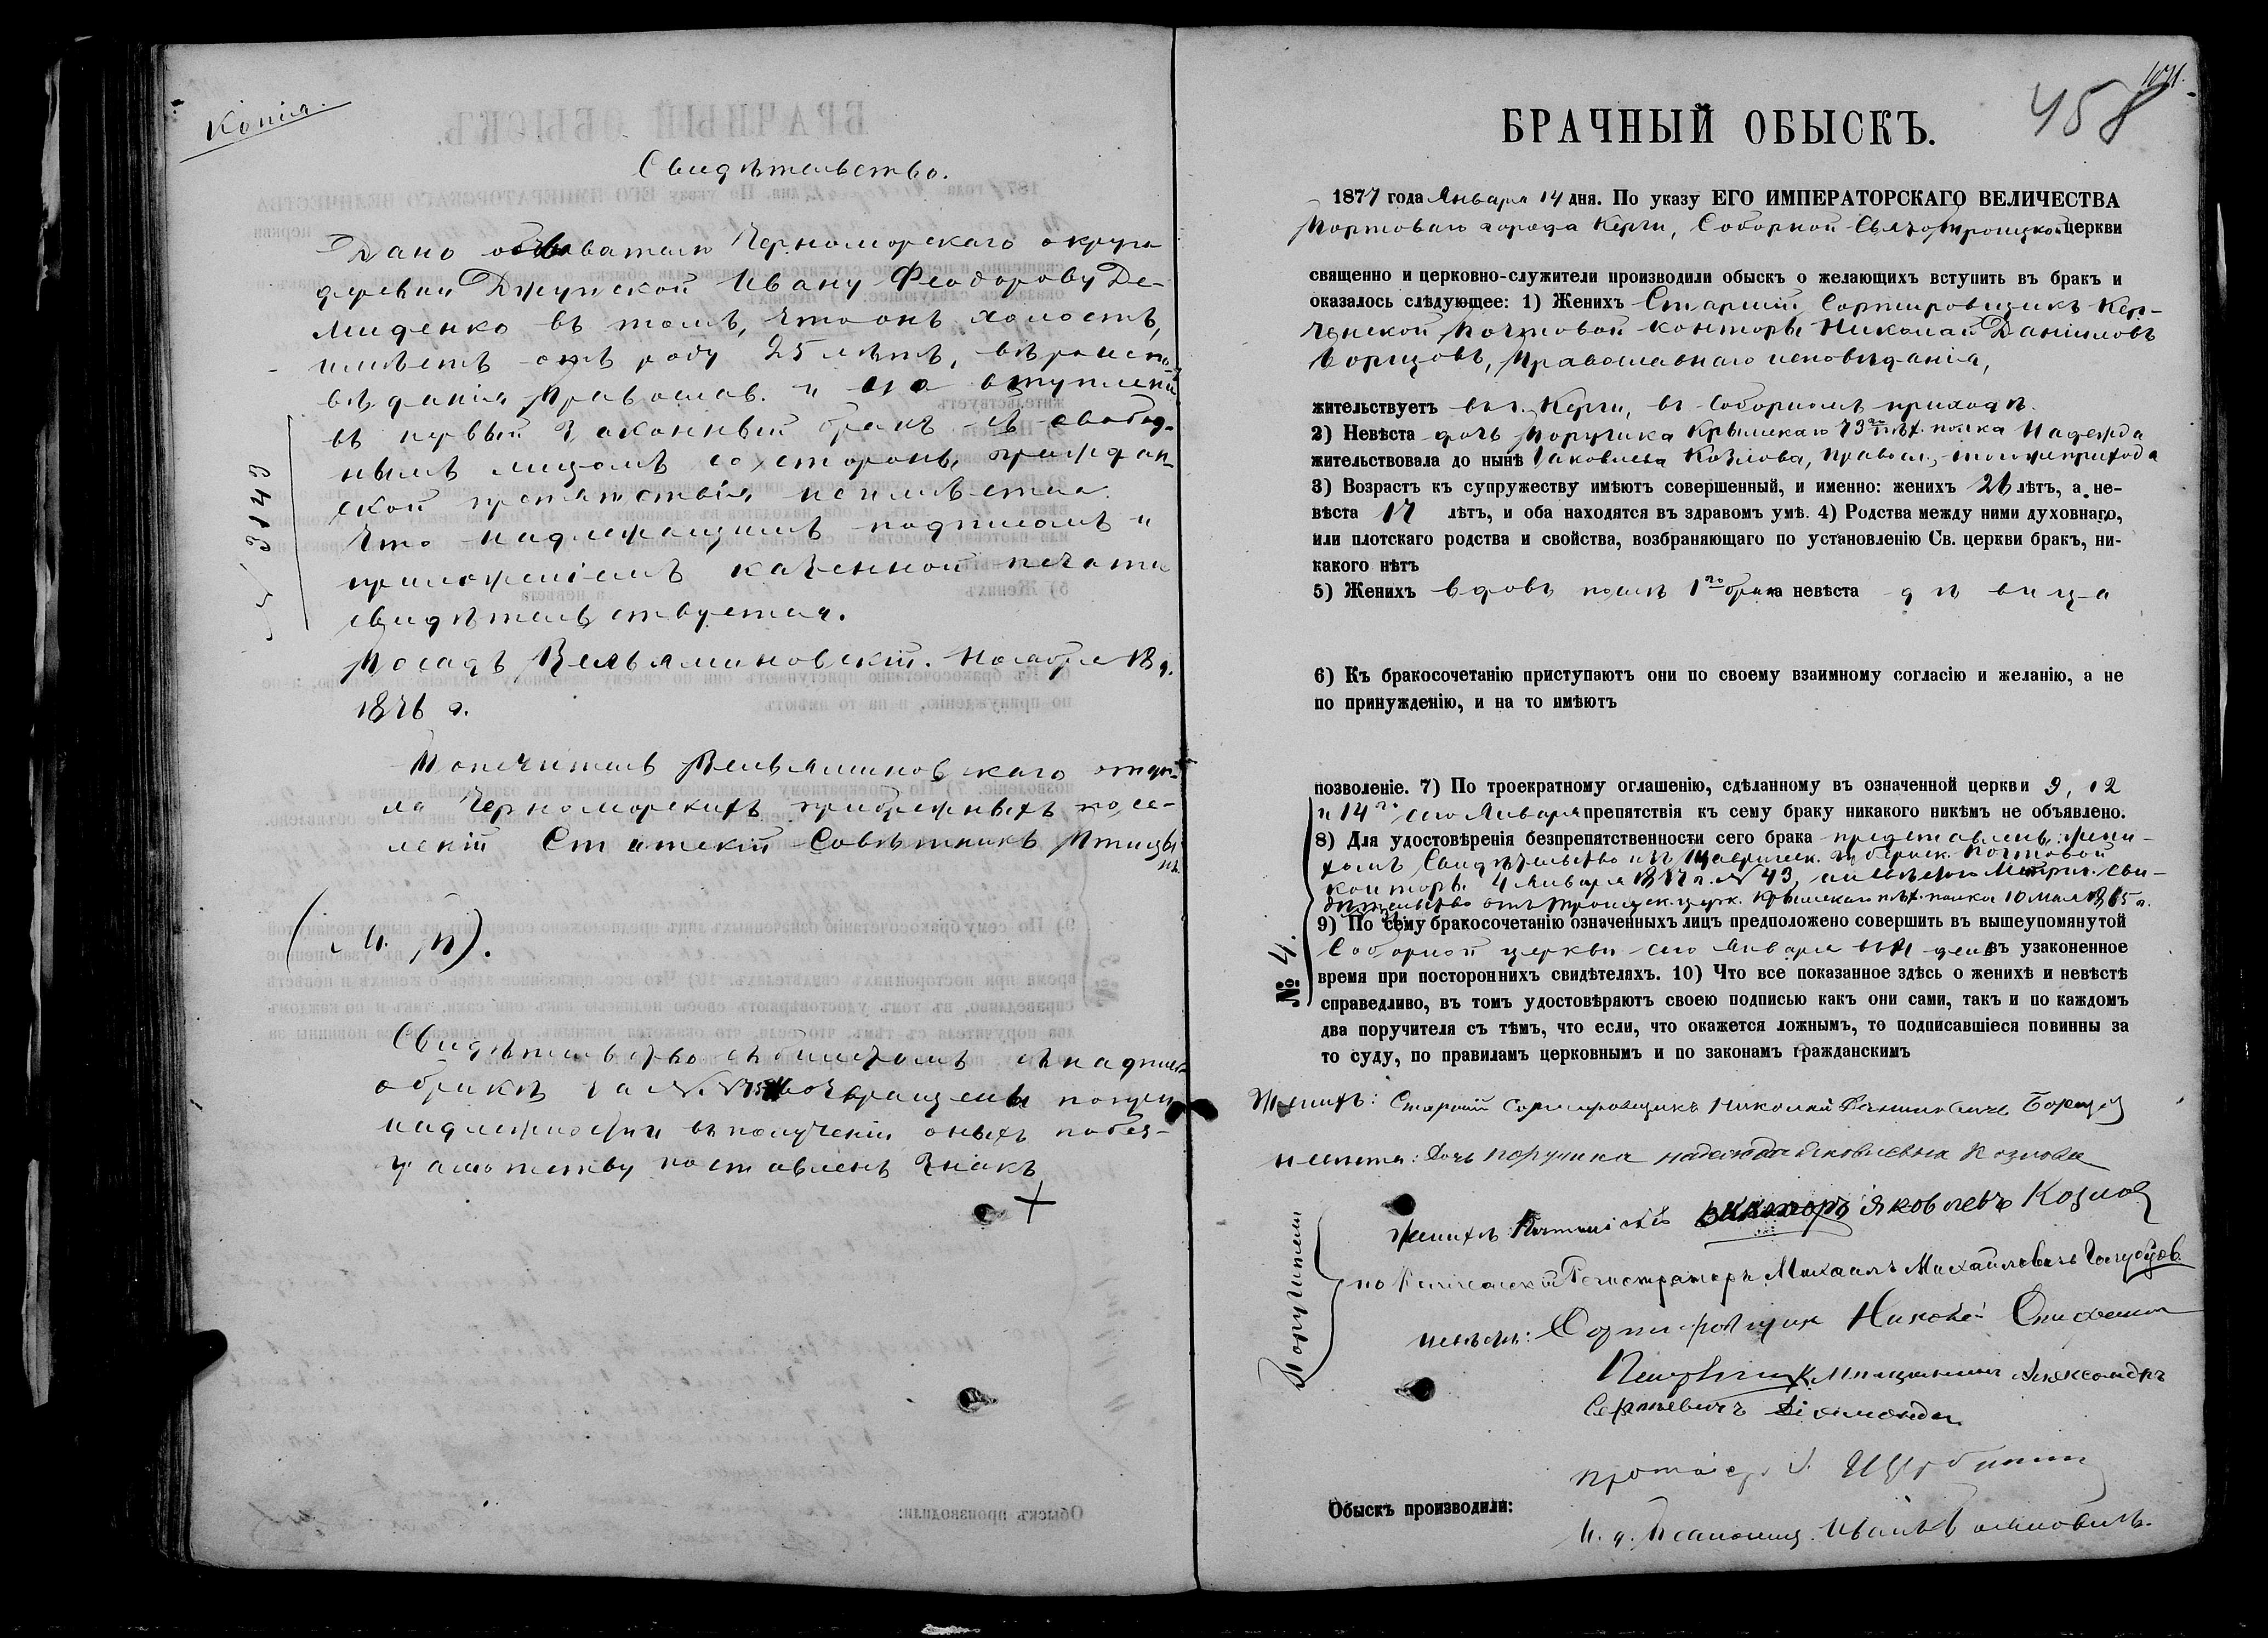 Копія.
Свидѣтельство.
Дано обывателю Черноморскаго округа
деревни Джупской Ивану Феодорову Де-
миденко въ томъ, что онъ холостъ,
имѣетъ отъ роду 25 лѣтъ, вѣроиспо-
вѣданія православ. и на вступленіе
въ первый законный бракъ съ свобод-
нымъ лицомъ со стороны граждан-
ской препятствія неимѣется.
Что надлежащимъ подписомъ и
приложеніемъ казенной печати
свидѣтельствуется.
№ 3143
Посадъ Вельяминовскій. Ноября 18 д.
1876 г.
Попечитель Вельяминовскаго отдѣ-
ла Черноморскихъ прибрежныхъ посе-
леній Статскій Совѣтникъ
(М. П.).
Свидѣтельство съ билетомъ
возвращены
надлежности въ полученіи оныхъ по без-
грамотству поставленъ знакъ
+
458
БРАЧНЫЙ ОБЫСКЪ.
1877 года Января 14 дня. По указу ЕГО ИМПЕРАТОРСКАГО ВЕЛИЧЕСТВА
Портоваго города Керчи, Соборной Свято-Троицкой церкви
священно и церковно-служители производили обыскъ о желающихъ вступить въ бракъ и
оказалось слѣдующее: 1) Женихъ Старшій Сортировщикъ Кер-
ченской Почтовой конторы Николай Даніиловъ
Борщовъ, Православнаго исповѣданія,
жительствуетъ въ г. Керчи, въ Соборномъ приходѣ.
2) Невѣста дочь Поручика Крымскаго 73го пѣх. полка Надежда
жительствовала до нынѣ Іаковлева Козлова, Правосл., того же прихода
3) Возрастъ къ супружеству имѣютъ совершенный, и именно: женихъ 26 лѣтъ, а не-
вѣста 17 лѣтъ, и оба находятся въ здравомъ умѣ. 4) Родства между ними духовнаго,
или плотскаго родства и свойства, возбраняющаго по установленію Св. церкви бракъ, ни-
какого нѣтъ
5) Женихъ вдовъ послѣ 1го брака невѣста дѣвица
6) Къ бракосочетанію приступаютъ они по своему взаимному согласію и желанію, а не
по принужденію, и на то имѣютъ
позволеніе. 7) По троекратному оглашенію, сдѣланному въ означенной церкви 9, 12
и 14го сего Января препятствія къ сему браку никакого никѣмъ не объявлено.
8) Для удостовѣренія безпрепятственности сего брака представлены жени-
хомъ Свидѣтельство изъ Таврическ. Губернск. Почтовой
конторы 4 Января 1877 г. № 43, Метрич. Сви-
дѣтельство отъ Троицк. церк. Крымскаго пѣх. полка 10 Мая
9) По сему бракосочетанію означенныхъ лицъ предположено совершить въ вышеупомянутой
Соборной церкви сего Января день въ узаконенное
время при постороннихъ свидѣтеляхъ. 10) Что все показанное здѣсь о женихѣ и невѣстѣ
справедливо, въ томъ удостовѣряютъ своею подписью какъ они сами, такъ и по каждомъ
два поручителя съ тѣмъ, что если, что окажется ложнымъ, то подписавшіеся повинны за
то суду, по правиламъ церковнымъ и по законамъ гражданскимъ
№ 4.
Женихъ: Старшій Сортировщикъ Николай Даниловичъ Борщов
Невѣста: Дочь поручика Надежда Яковлевна Козлова
Поручители
по женихѣ: Викторъ Яковлевъ Козлов
Регистраторъ Михаилъ Михайловичъ Голубцов
по невѣстѣ: Сортировщик
мещанинъ Александръ
Сергѣевичъ
протоіер.
Обыскъ производили:
И. д. Псаломщ. Иванъ